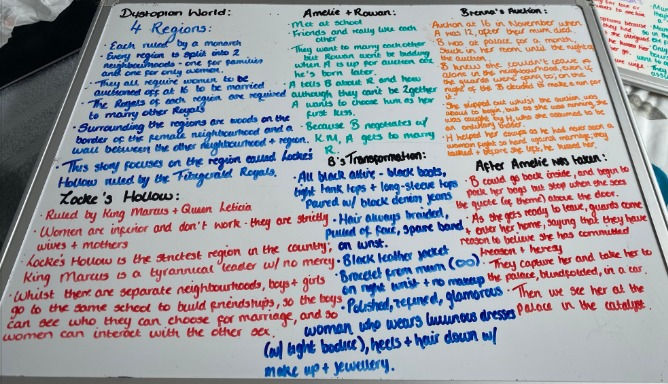 Dystopian World:
4 Regions:
· Each ruled by a monarch
· Every region is split into 2
neighbourhoods - one for families
and one for only women.
· They all require women to be
auctioned off at 16 to be married
· The Royals of each region are required
to marry other Royals
· Surrounding the regions are woods on the
border of the female neighbourhood and a
wall between the other neighbourhood + region.
· This story focuses on the region called Locke's
Hollow ruled by the Fitzgerald Royals.
Locke's Hollow:
· Ruled by King Marcus + Queen Leticia
· Women are inferior and don't work - they are strictly
wives + mothers
· Locke's Hollow is the strictest region in the country;
King Marcus is a tyrannical leader w/ no mercy.
· Whilst there are separate neighbourhoods, boys + girls
go to the same school to build friendships, so the boys
can see who they can choose for marriage, and so
women can interact with the other sex.
Amelie + Rowan:
· Met at school
· Friends and really like each
other
· They want to marry each other
but Rowan won't be bidding
when A is up for auction as
he's born later.
· A tells B about R and how
although they can't be 2gether
A wants to choose him as her
first kiss.
· Because B negotiates w/
K.M, A gets to marry
R.
B's Transformation:
· All black attire - black boots,
tight tank tops + long-sleeve tops
paired w/ black denim jeans
· Hair always braided,
pulled off face, spare band
on wrist.
· Black leather jacket
· Bracelet from mum (∞)
on right wrist + no makeup
· Polished, refined, glamorous
woman who wears luminous dresses
(w/ tight bodice), heels + hair down w/
make up + jewellery.
Brenna's Auction:
· Auction at 16 in November when
A was 12, after their mum died.
· B was at palace for a month
stuck in her room until the night of
the auction.
the auction was
about to begin, but as she was running, she
was caught by H, who she assumes to be
an ordinary
H helped her escape as he had never seen a
woman fight so hard against marriage; they
talked + before she left, he kissed her.
After Amelie was taken:
· B could go back inside, and begin to
pack her bags but stop when she sees
the quote (of theme) above the door.
· As she gets ready to leave, guards come
+ enter her home, saying that they have
reason to believe she has committed
treason + heresy
· They capture her and take her to
the palace, blindfolded, in a car.
· Then we see her at the
palace in the catalyst.